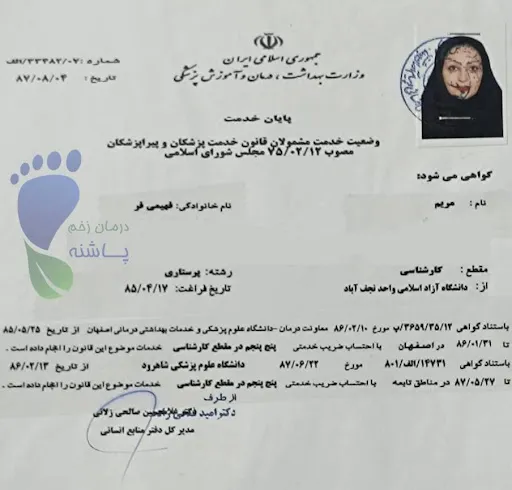 جمهوری اسلامی ایران
وزارت بهداشت ، درمان و آموزش پزشکی
شماره : ۳۳۴۸۲/۰۷/الف
تاریخ : ۸۷/۰۸/۰۴
پایان خدمت
وضعیت خدمت مشمولان قانون خدمت پزشکان و پیراپزشکان
مصوب ۷۵/۰۲/۱۲ مجلس شورای اسلامی
گواهی می شود:
نام : مریم نام خانوادگی: فهیمی فر
درمان زخم
پاشنه
مقطع : کارشناسی رشته: پرستاری
از: دانشگاه آزاد اسلامی واحد نجف آباد تاریخ فراغت: ۸۵/۰۴/۱۷
باستناد گواهی ۳۶۵۹/۳۵/۱۲/پ مورخ ۸۶/۰۲/۱۰ معاونت درمان -دانشگاه علوم پزشکی و خدمات بهداشتی درمانی اصفهان از تاریخ ۸۵/۰۵/۲۵
تا ۸۶/۰۱/۳۱ در اصفهان با احتساب ضریب خدمتی پنج پنجم در مقطع کارشناسی خدمات موضوع این قانون را انجام داده است .
باستناد گواهی ۸۰۱/۱۴۷۳۱/الف مورخ ۸۷/۰۶/۲۲ دانشگاه علوم پزشکی شاهرود از تاریخ ۸۶/۰۲/۱۳
تا ۸۷/۰۵/۲۷ در مناطق تابعه با احتساب ضریب خدمتی پنج پنجم در مقطع کارشناسی خدمات موضوع این قانون را انجام داده است .
از طرف
صالحی زلانی
دکتر امید
مدیر کل دفتر منابع انسانی